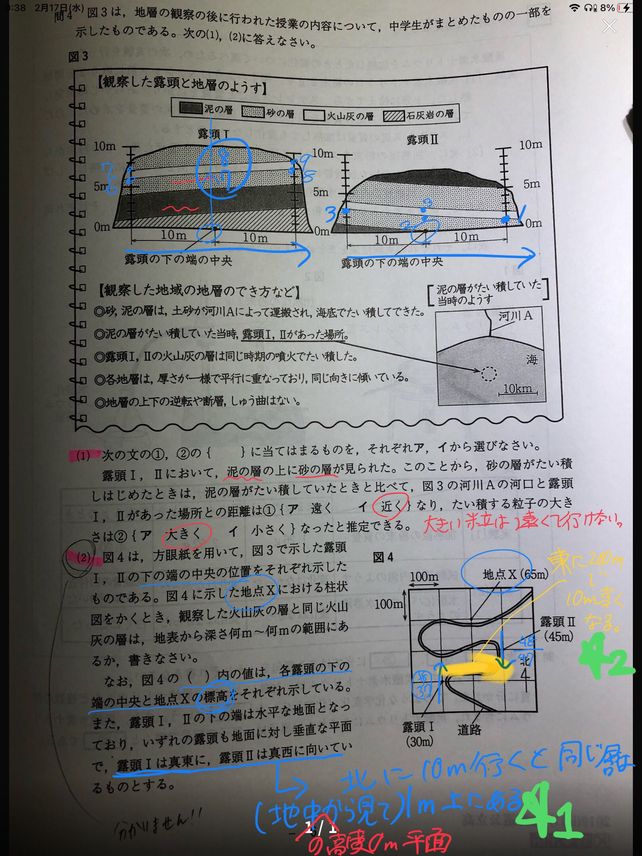 0:38 2月17日(水)
8%
問4 図3は，地層の観察の後に行われた授業の内容について，中学生がまとめたものの一部を
示したものである。次の(1)，(2)に答えなさい。
図3
【観察した露頭と地層のようす】
泥の層 砂の層 火山灰の層 石灰岩の層
露頭Ⅰ 露頭Ⅱ
10m 10m 10m 10m
5m 5m 5m 5m
0m 0m 0m 0m
10m 10m 10m 10m
露頭の下の端の中央 露頭の下の端の中央
8
7
9
8
3
2
1
【観察した地域の地層のでき方など】
◎砂，泥の層は，土砂が河川Aによって運搬され，海底でたい積してできた。
◎泥の層がたい積していた当時，露頭Ⅰ，Ⅱがあった場所。
◎露頭Ⅰ，Ⅱの火山灰の層は同じ時期の噴火でたい積した。
◎各地層は，厚さが一様で平行に重なっており，同じ向きに傾いている。
◎地層の上下の逆転や断層，しゅう曲はない。
泥の層がたい積していた
当時のようす
河川A
海
10km
(1) 次の文の①，②の｛ ｝に当てはまるものを，それぞれア，イから選びなさい。
露頭Ⅰ，Ⅱにおいて，泥の層の上に砂の層が見られた。このことから，砂の層がたい積
しはじめたときは，泥の層がたい積していたときと比べて，図3の河川Aの河口と露頭
Ⅰ，Ⅱがあった場所との距離は①｛ア 遠く イ 近く｝なり，たい積する粒子の大き
さは②｛ア 大きく イ 小さく｝なったと推定できる。
大きい粒は遠くで行けない。
(2) 図4は，方眼紙を用いて，図3で示した露頭
Ⅰ，Ⅱの下の端の中央の位置をそれぞれ示した
ものである。図4に示した地点Xにおける柱状
図をかくとき，観察した火山灰の層と同じ火山
灰の層は，地表から深さ何m～何mの範囲にあ
るか，書きなさい。
なお，図4の（ ）内の値は，各露頭の下の
端の中央と地点Xの標高をそれぞれ示している。
また，露頭Ⅰ，Ⅱの下の端は水平な地面となっ
ており，いずれの露頭も地面に対し垂直な平面
で，露頭Ⅰは真東に，露頭Ⅱは真西に向いてい
るものとする。
図4
100m 地点X(65m)
100m
露頭Ⅱ
(45m)
北
露頭Ⅰ
(30m)
道路
東に200m
で
10m高く
なる。
4 2
分かりません!!
北に10m行くと同じ層は
(地中から見て)1m上にある
4 1
の高度0m平面
1/1